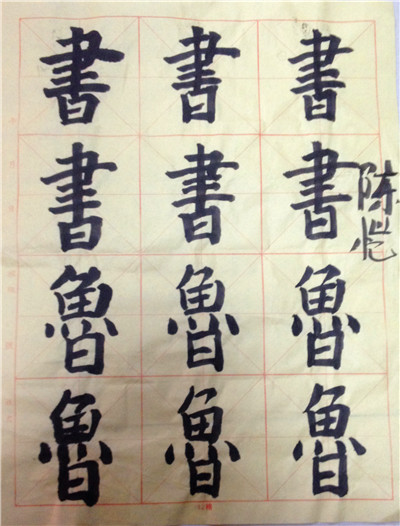 書書書
書書書
魯魯魯
魯魯魯
陈恺